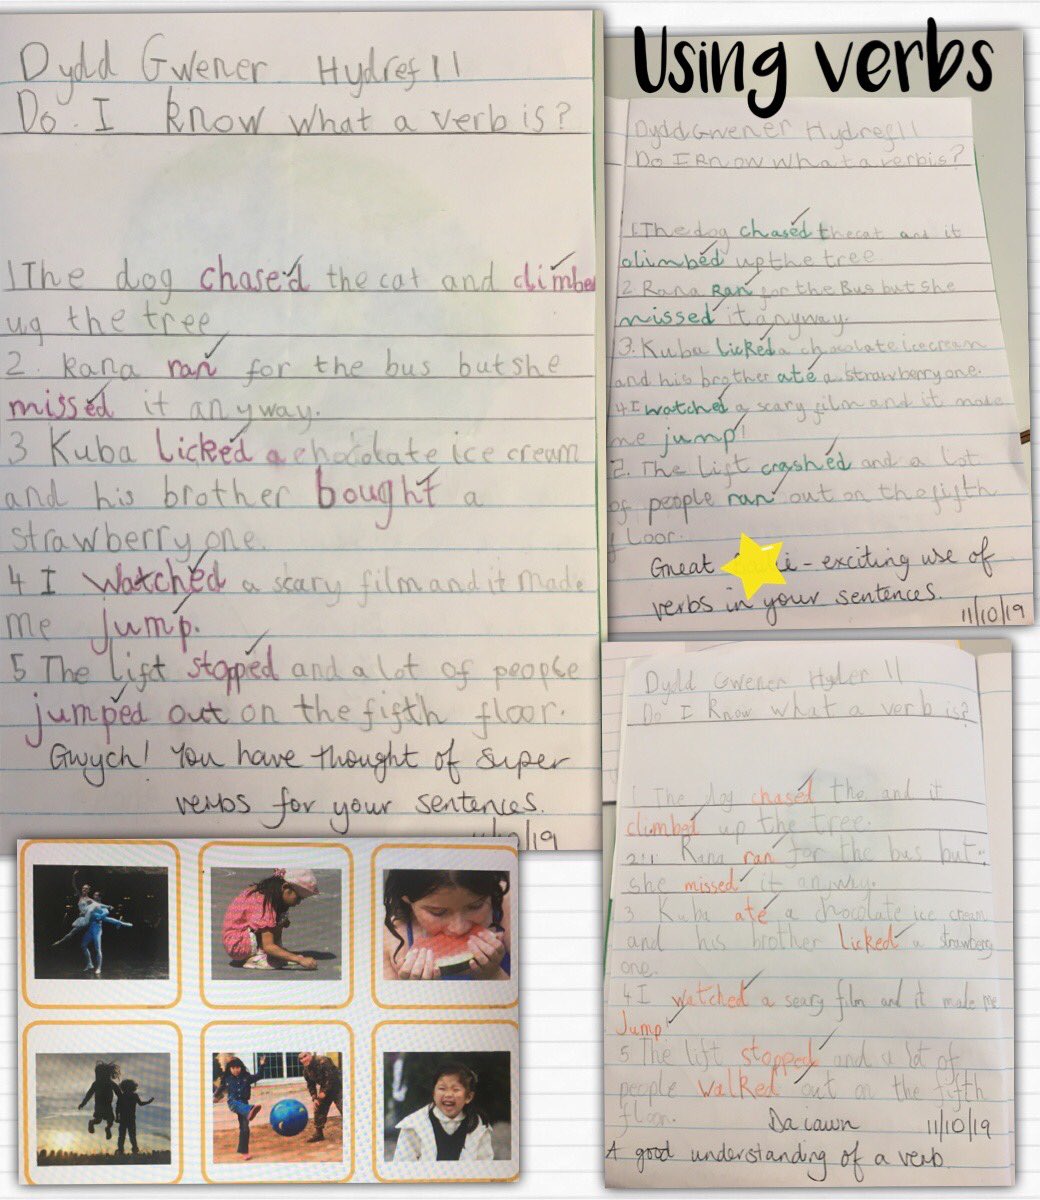 Using verbs
Dydd Gwener Hydref 11
Do I know what a verb is?
1 The dog chased the cat and climbed
ug the tree
2. Rana ran for the bus but she
missed it anyway.
3 Kuba licked a chocolate ice cream
and his brother bought a
strawberry one.
4 I watched a scary film and it made
me jump.
5 The lift stopped and a lot of people
jumped out on the fifth floor.
Gwych! You have thought of super
verbs for your sentences.
11/10/19
Dydd Gwener Hydref 11
Do I Know what a verb is?
1. The dog chased the cat and it
climbed up the tree
2. Rana Ran for the Bus but she
missed it anyway.
3. Kuba licked a chocolate icecream
and his brother ate a strawberry one.
4 I watched a scary film and it made
me jump!
2. The lift crashed and a lot
of people ran out on the fifth
floor.
Great - exciting use of
verbs in your sentences.
11/10/19
Dydd Gwener Hyder 11
Do I Know what a verb is?
1 The dog chased the and it
climbed up the tree.
2 Rana ran for the bus but
she missed it anyway.
3 Kuba ate a chocolate ice cream
and his brother licked a strawberg
one.
4 I watched a scary film and it made me
Jump
5 The lift stopped and a lot of
people walked out on the fifth
floor.
Da iawn 11/10/19
A good understanding of a verb.